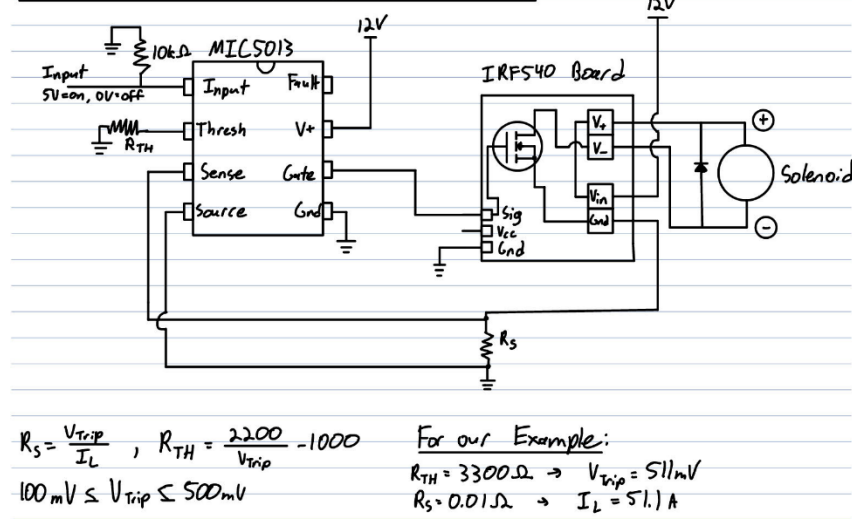 12V
12V
10kΩ
MIC5013
Input
5V=on, 0V=off
Input
Fault
Thresh
V+
R_TH
Sense
Gate
Source
Gnd
IRF540 Board
V+
V-
Vin
Gnd
Sig
Vcc
Gnd
+
Solenoid
-
R_S
R_S = V_Trip / I_L , R_TH = 2200 / V_Trip - 1000
100mV ≤ V_Trip ≤ 500mV
For our Example:
R_TH = 3300Ω → V_Trip = 511mV
R_S = 0.01Ω → I_L = 51.1A